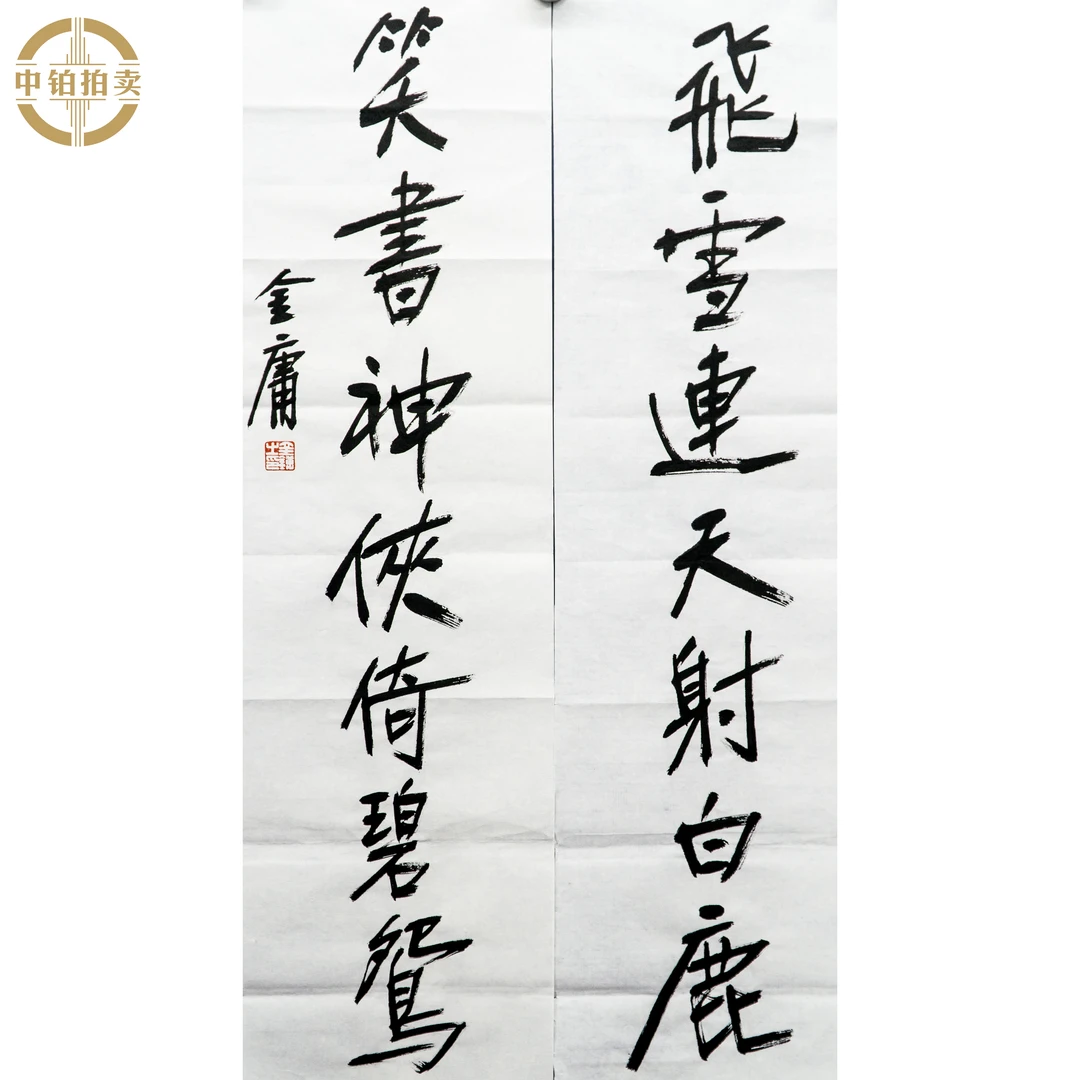 中铂拍卖
飛雪連天射白鹿
笑書神俠倚碧鴛
金庸